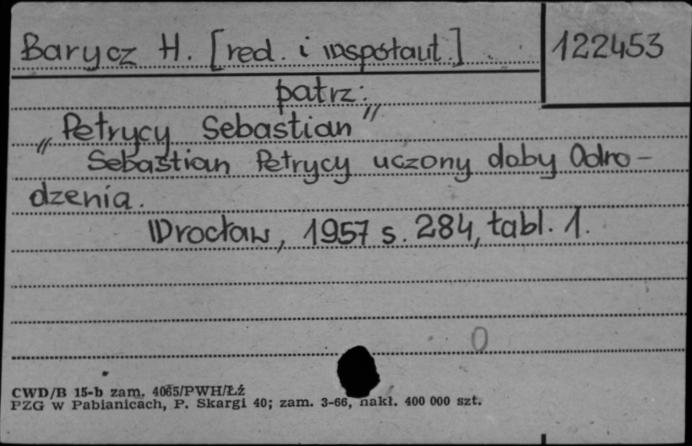 Barycz H. [red. i współaut.] 122453
patrz:
„Petrycy Sebastian”
Sebastian Petrycy uczony doby Odro-
dzenia.
Wrocław, 1957 s. 284, tabl. 1.
0
CWD/B 15-b zam. 4065/PWH/Łź
PZG w Pabianicach, P. Skargi 40; zam. 3-66, nakł. 400 000 szt.